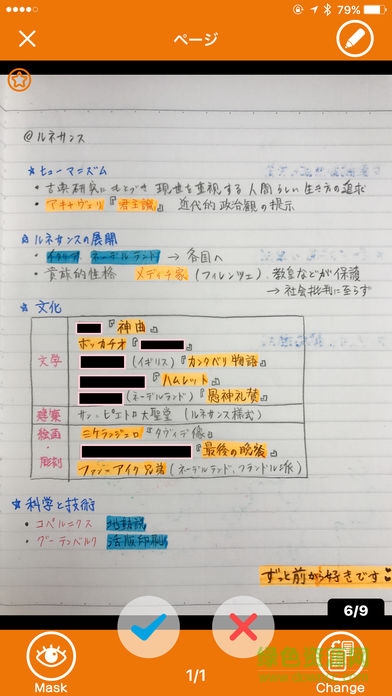 79%
ページ
@ルネサンス
★ヒューマニズム
・古典研究にもとづき 現世を重視する 人間らしい生き方の追求
・マキャヴェリ『君主論』 近代的政治観の提示
★ルネサンスの展開
・イタリア ネーデルラント → 各国へ
・貴族的性格 メディチ家(フィレンツェ)、教皇などが保護
→社会批判に至らず
★文化
『神曲』
ボッカチオ『』
文学 (イギリス)『カンタベリ物語』
『ハムレット』
(ネーデルランド)『愚神礼賛』
建築 サン=ピエトロ大聖堂 (ルネサンス様式)
絵画・彫刻 ミケランジェロ『ダヴィデ像』
『最後の晩餐』
ファン=アイク兄弟(ネーデルランド、フランドル派)
★科学と技術
・コペルニクス 地動説
・グーテンベルク 活版印刷
ずっと前から好きです
6/9
Mask
1/1
Change
绿色资源网